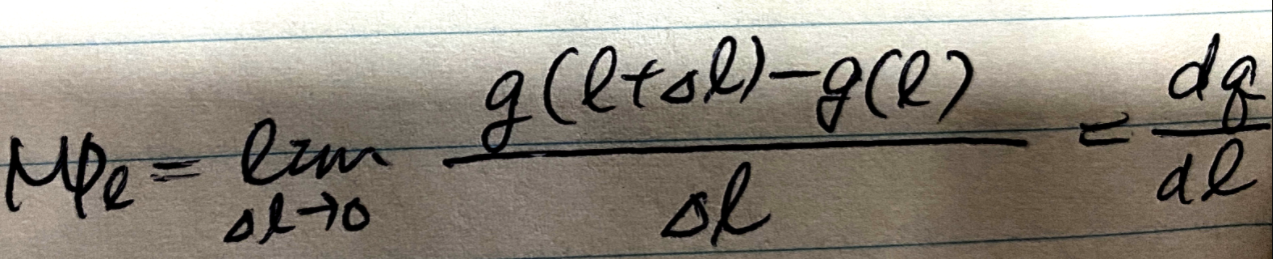 MPℓ = lim Δℓ→0 g(ℓ+Δℓ)-g(ℓ) / Δℓ = dq / dℓ